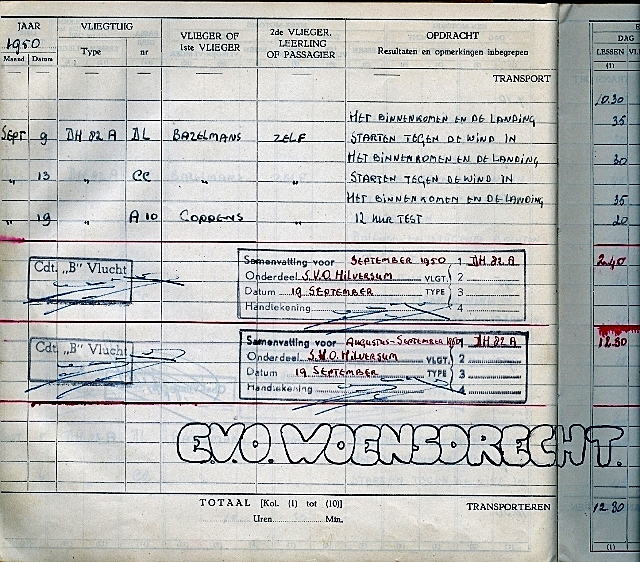 JAAR VLIEGTUIG VLIEGER OF 1STE VLIEGER 2de VLIEGER, LEERLING OF PASSAGIER OPDRACHT DAG
1950 Type nr Resultaten en opmerkingen inbegrepen LESSEN
Maand Datum (1)
TRANSPORT
10.30
HET BINNENKOMEN EN DE LANDING 35
SEPT 9 DH 82 A DL BAZELMANS ZELF STARTEN TEGEN DE WIND IN
HET BINNENKOMEN EN DE LANDING 30
" 13 " CC " " STARTEN TEGEN DE WIND IN
HET BINNENKOMEN EN DE LANDING 35
" 19 " A 10 COPPENS " 12 UUR TEST 20
Cdt. „B" Vlucht
Samenvatting voor SEPTEMBER 1950 1 DH 82 A 2.40
Onderdeel S.V.O. HILVERSUM VLGT. 2
Datum 19 SEPTEMBER TYPE 3
Handtekening 4
Cdt. „B" Vlucht
Samenvatting voor AUGUSTUS-SEPTEMBER 1950 1 DH 82 A 12.30
Onderdeel S.V.O. HILVERSUM VLGT. 2
Datum 19 SEPTEMBER TYPE 3
Handtekening 4
E.V.O. WOENSDRECHT.
TOTAAL [Kol. (1) tot (10)] TRANSPORTEREN 12 30
Uren Min.
(1)